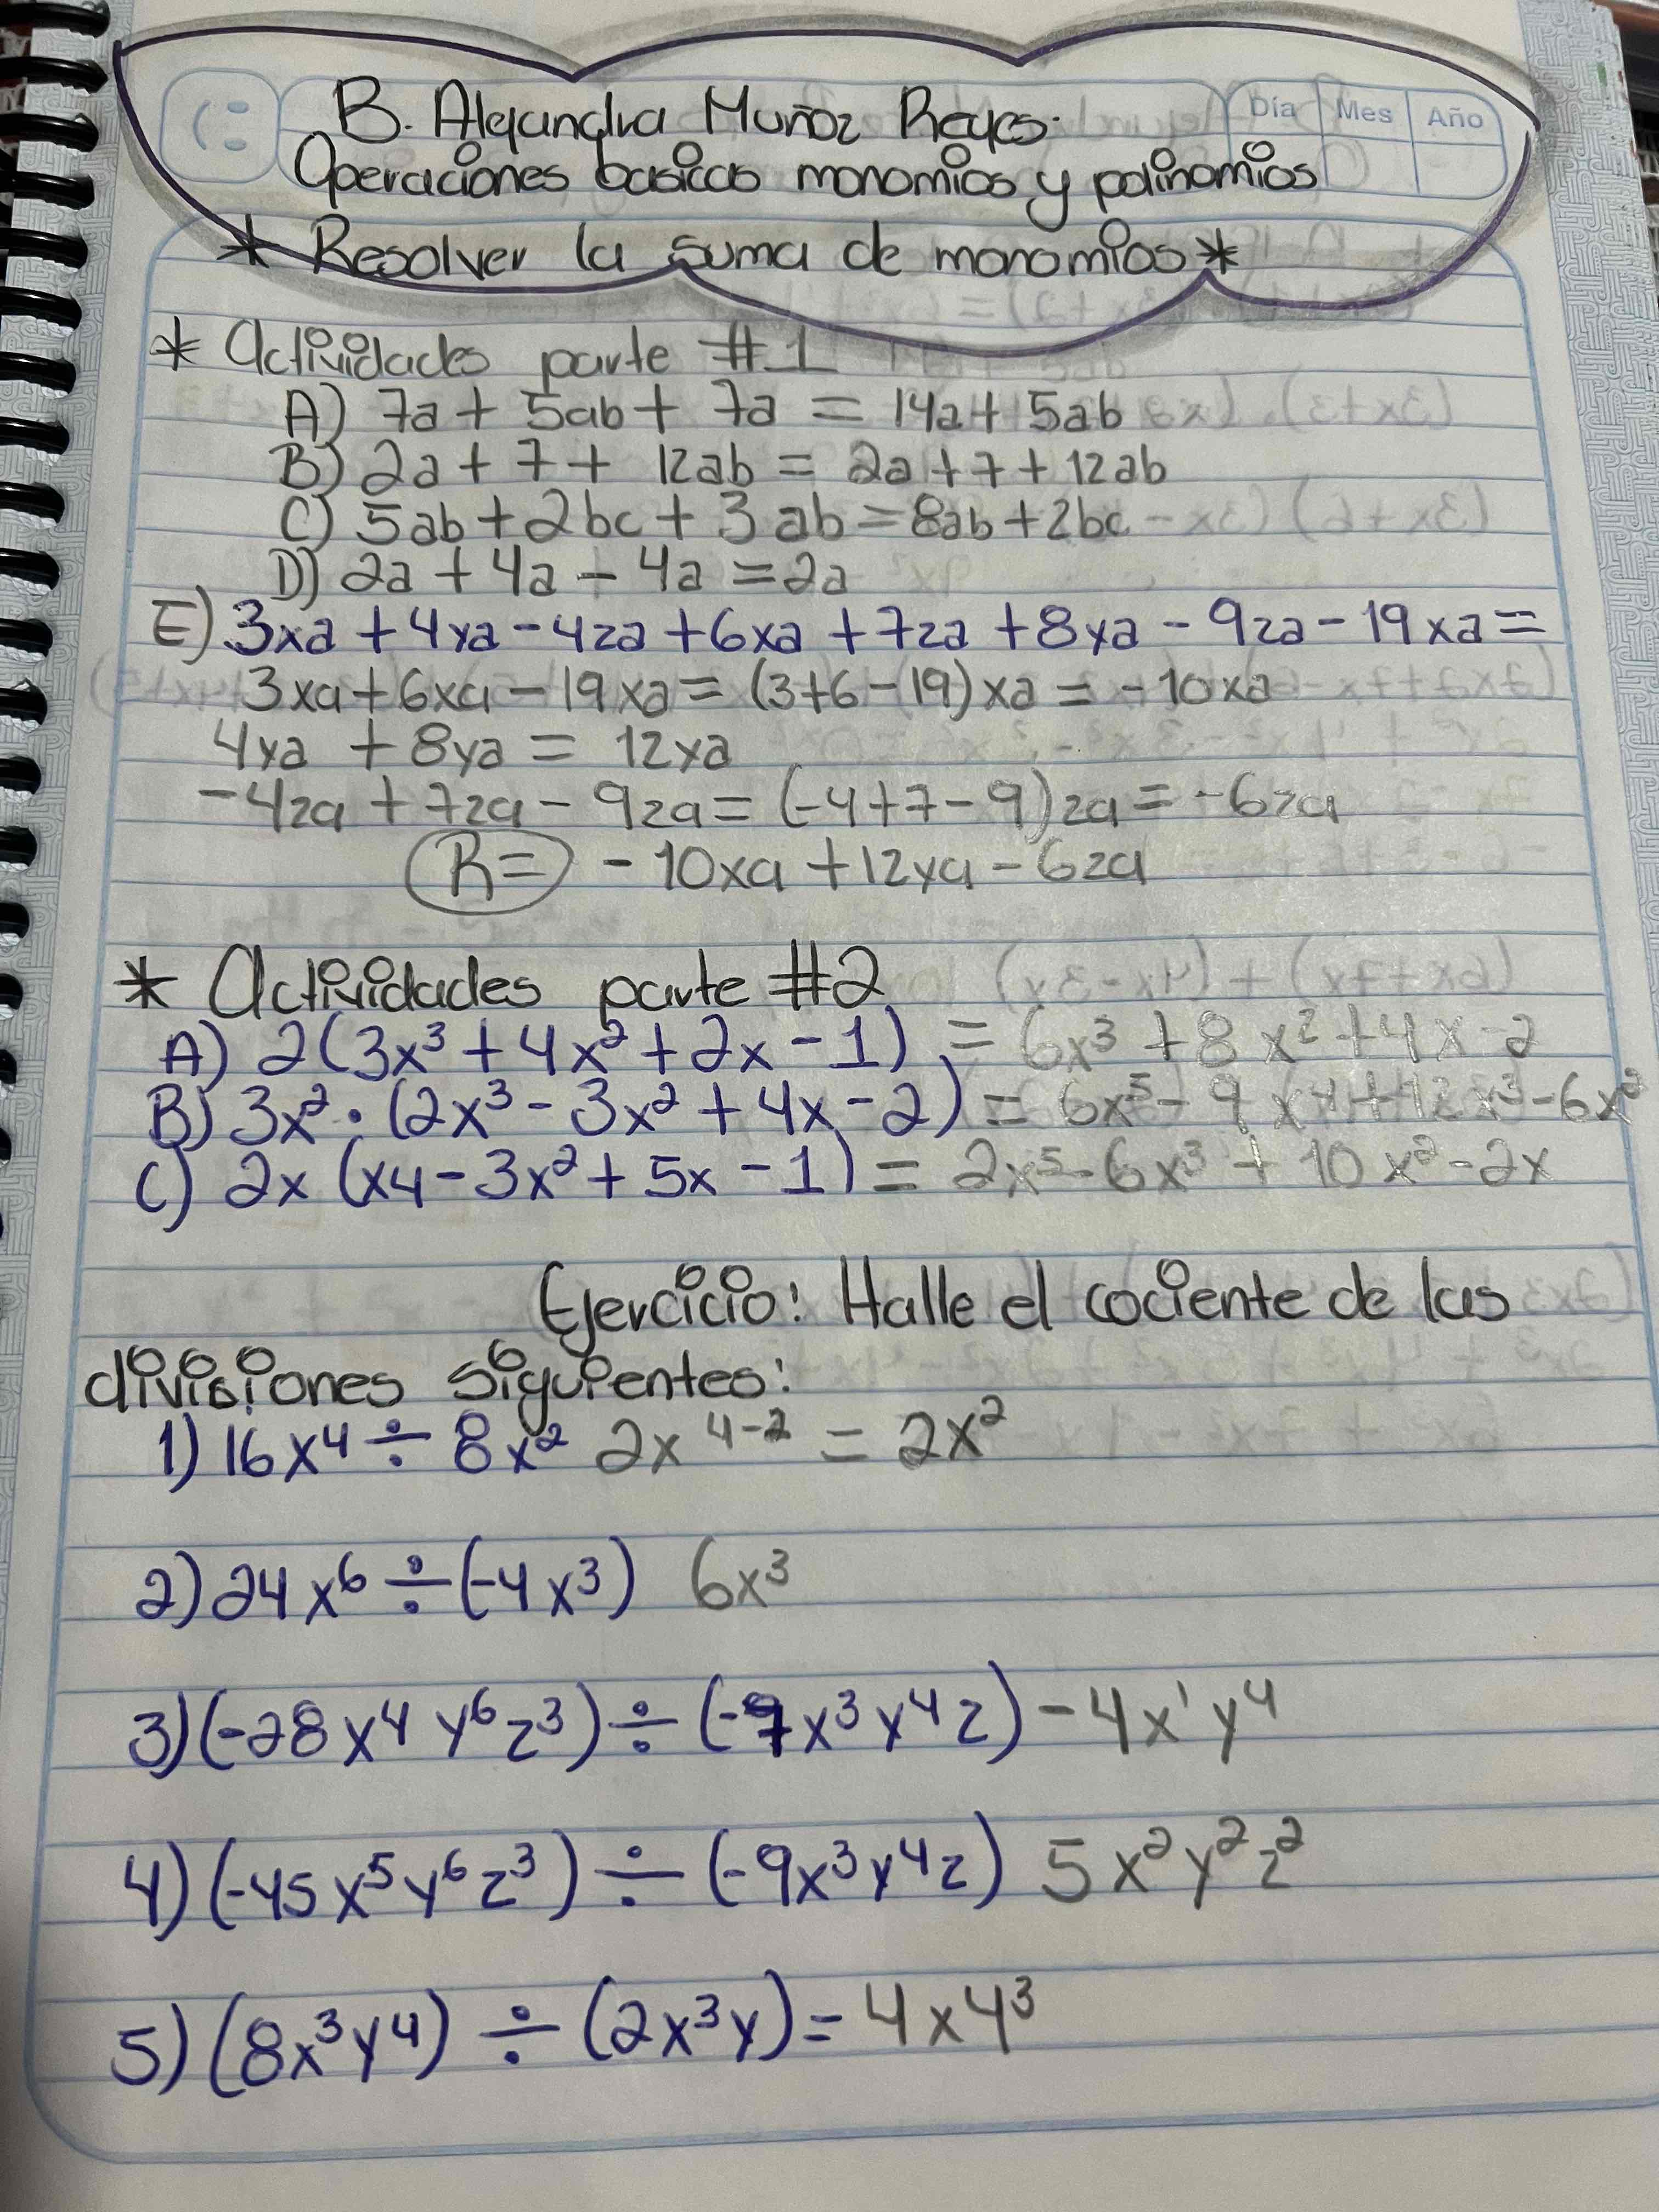 B. Alejandra Muñoz Reyes.
Día Mes Año
Operaciones basicas monomios y polinomios
* Resolver la suma de monomios *
* Actividades parte #1
A) 7a + 5ab + 7a = 14a + 5ab
B) 2a + 7 + 12ab = 2a + 7 + 12ab
C) 5ab + 2bc + 3ab = 8ab + 2bc
D) 2a + 4a - 4a = 2a
E) 3xa + 4ya - 4za + 6xa + 7za + 8ya - 9za - 19xa =
3xa + 6xa - 19xa = (3+6-19)xa = -10xa
4ya + 8ya = 12ya
-4za + 7za - 9za = (-4+7-9)za = -6za
R= -10xa + 12ya - 6za
* Actividades parte #2
A) 2(3x³ + 4x² + 2x - 1) = 6x³ + 8x² + 4x - 2
B) 3x² · (2x³ - 3x² + 4x - 2) = 6x⁵ - 9x⁴ + 12x³ - 6x²
C) 2x (x4 - 3x² + 5x - 1) = 2x⁵ - 6x³ + 10x² - 2x
Ejercicio: Halle el cociente de las
divisiones siguientes:
1) 16x⁴ ÷ 8x² 2x⁴⁻² = 2x²
2) 24x⁶ ÷ (-4x³) 6x³
3) (-28x⁴y⁶z³) ÷ (-7x³y⁴z) -4x¹y⁴
4) (-45x⁵y⁶z³) ÷ (-9x³y⁴z) 5x²y²z²
5) (8x³y⁴) ÷ (2x³y) = 4x4³